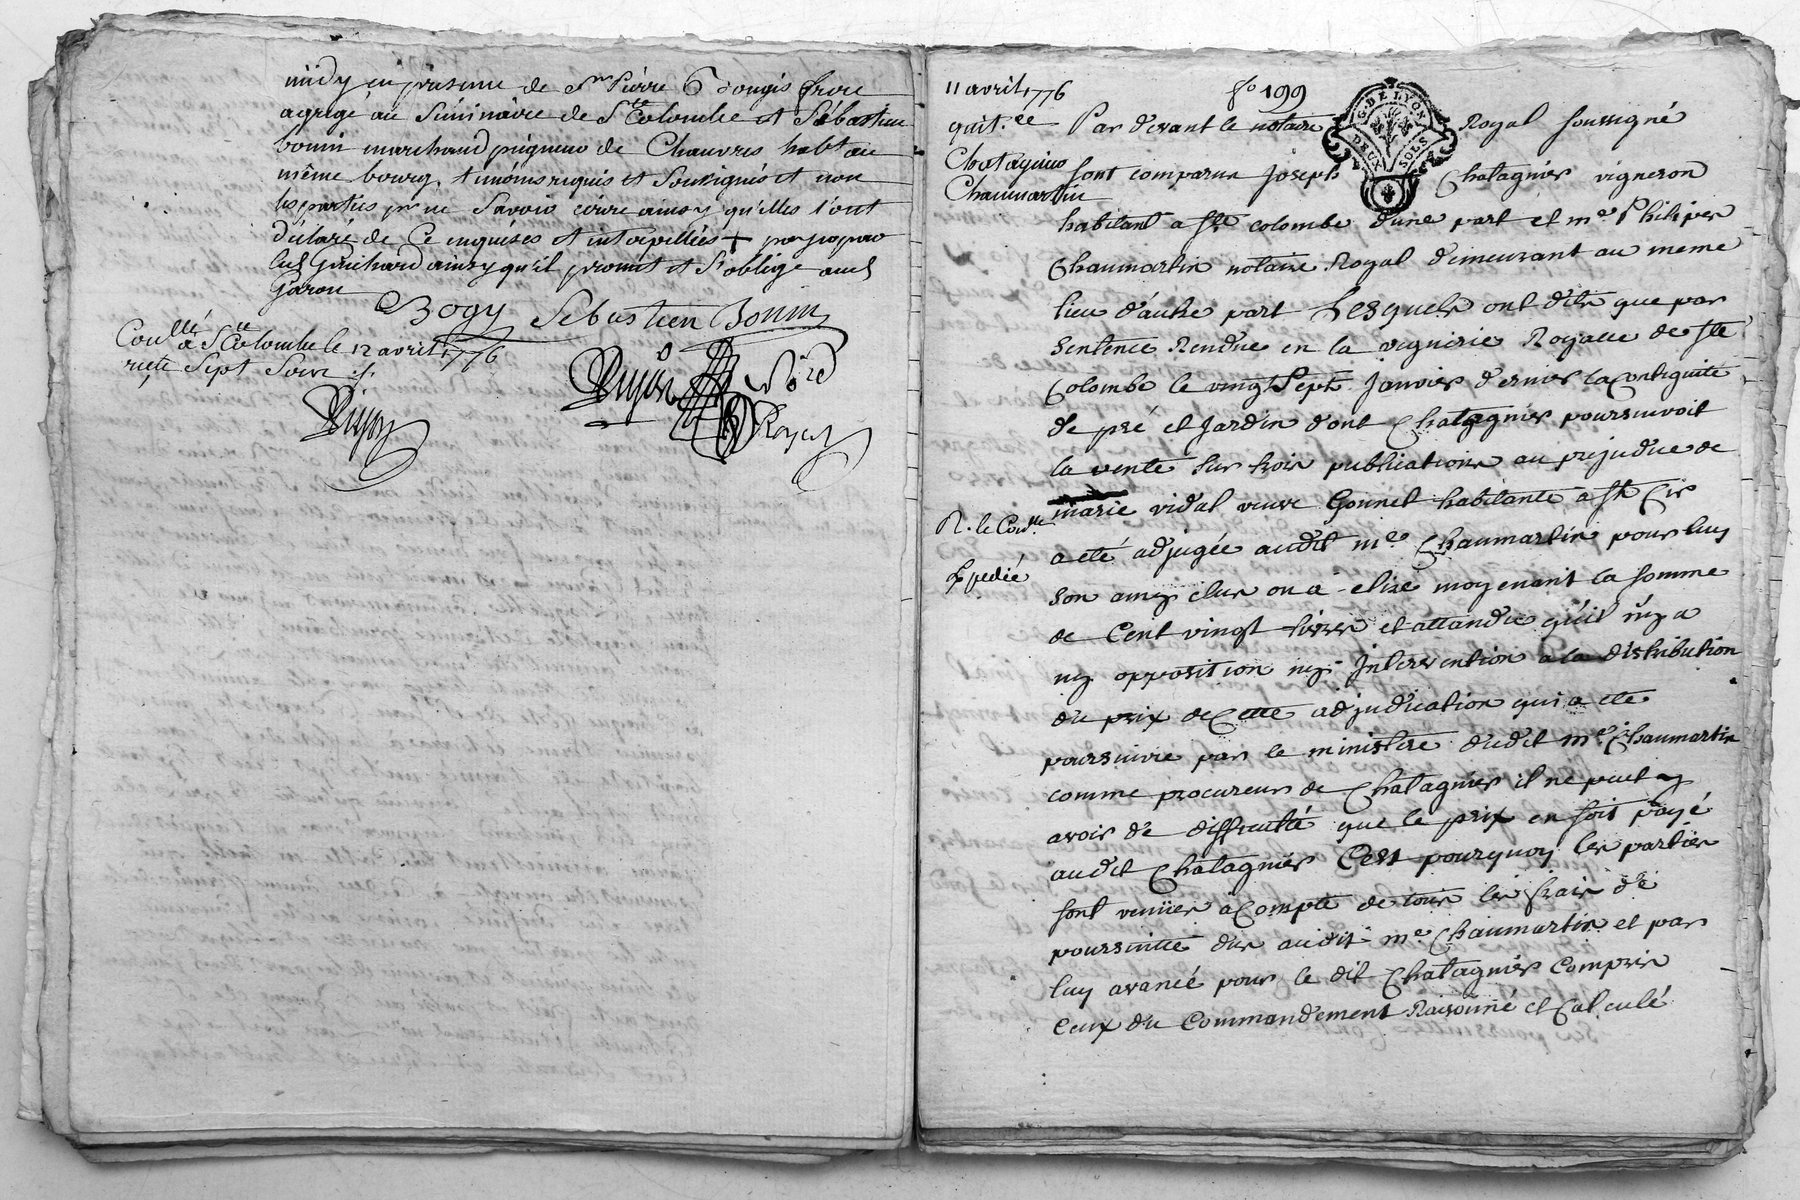 midy en presence de Sr Pierre Dongis frere
agregé au Séminaire de Ste Colombe et Sébastien
bonin marchand peigneur de Chanvres habt au
même bourg, témoins requis et soussignés et non
les parties pr ne savoir écrire ainsy qu'elles l'ont
déclaré de ce enquises et interpellées +
Guichard ainsy qu'il promit et s'oblige aud
garou
Bogy Sebastien Bonin
Conllé à Ste Colombe le 12 avril 1776
reçu sept sous
Dujon
Dujon
Royal
11 avril 1776
fo 199
quit.ce
Chatagnier
Chaumartin
G. DE LYON
DEUX SOLS
Par devant le notaire Royal soussigné
sont comparus joseph Chatagnier vigneron
habitant a ste colombe d'une part et me Philiper
Chaumartin notaire Royal demeurant au meme
lieu d'autre part Lesquels ont dits que par
sentence Rendue en la viguirie Royalle de ste
Colombe le vingt sept janvier dernier la contiguite
de pré et jardin dont Chatagnier poursuivoit
la vente sur trois publications au prejudice de
marie vidal veuve Gonnet habitante a st Cir
R. le Conlle
a eté adjugée audit me Chaumartin pour luy
Expedié
son amy elus ou a elire moyenant la somme
de Cent vingt livres et attandu qu'il n'y a
ny opposition ny Intervention a la distribution
du prix de Cette adjudication qui a eté
poursuivie par le ministere dudit me Chaumartin
comme procureur de Chatagnier il ne peut y
avoir de difficulté que le prix en soit payé
audit Chatagnier C'est pourquoy les parties
sont venues a Compte de tous les frais de
poursuitte dus audit me Chaumartin et par
luy avancé pour le dit Chatagnier Compris
Ceux du Commandement Raisonné et Calculé